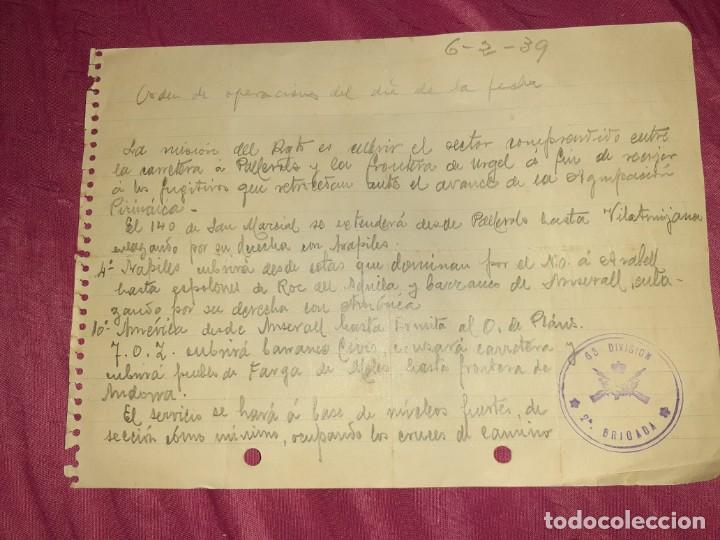 6-2-39
Orden de operaciones del día de la fecha
La misión del Rgto es cubrir el sector comprendido entre
la carretera á Pallerols y la frontera de Urgel á fin de recojer
á los fugitivos que retrocedan ante el avance de la Agrupación
Pirináica.-
El 140 de San Marcial se extenderá desde Pallerols hasta Vilamijana
enlazando por su derecha con Arapiles.
4º Arapiles cubrirá desde cotas que dominan por el N.O. á Arabell
hasta espolones de Roc del Aguila y barranco de Anserall, enla-
zando por su derecha con América
10º América desde Anserall hasta Ermita al O. de
7.O.Z. cubrirá barranco Civis, cruzará carretera y
cubrirá de Farga de Moles hasta frontera de
Andorra.
El servicio se hará á base de núcleos fuertes, de
sección cómo mínimo, ocupando los cruces de camino
63 DIVISION
2ª. BRIGADA
todocoleccion.net